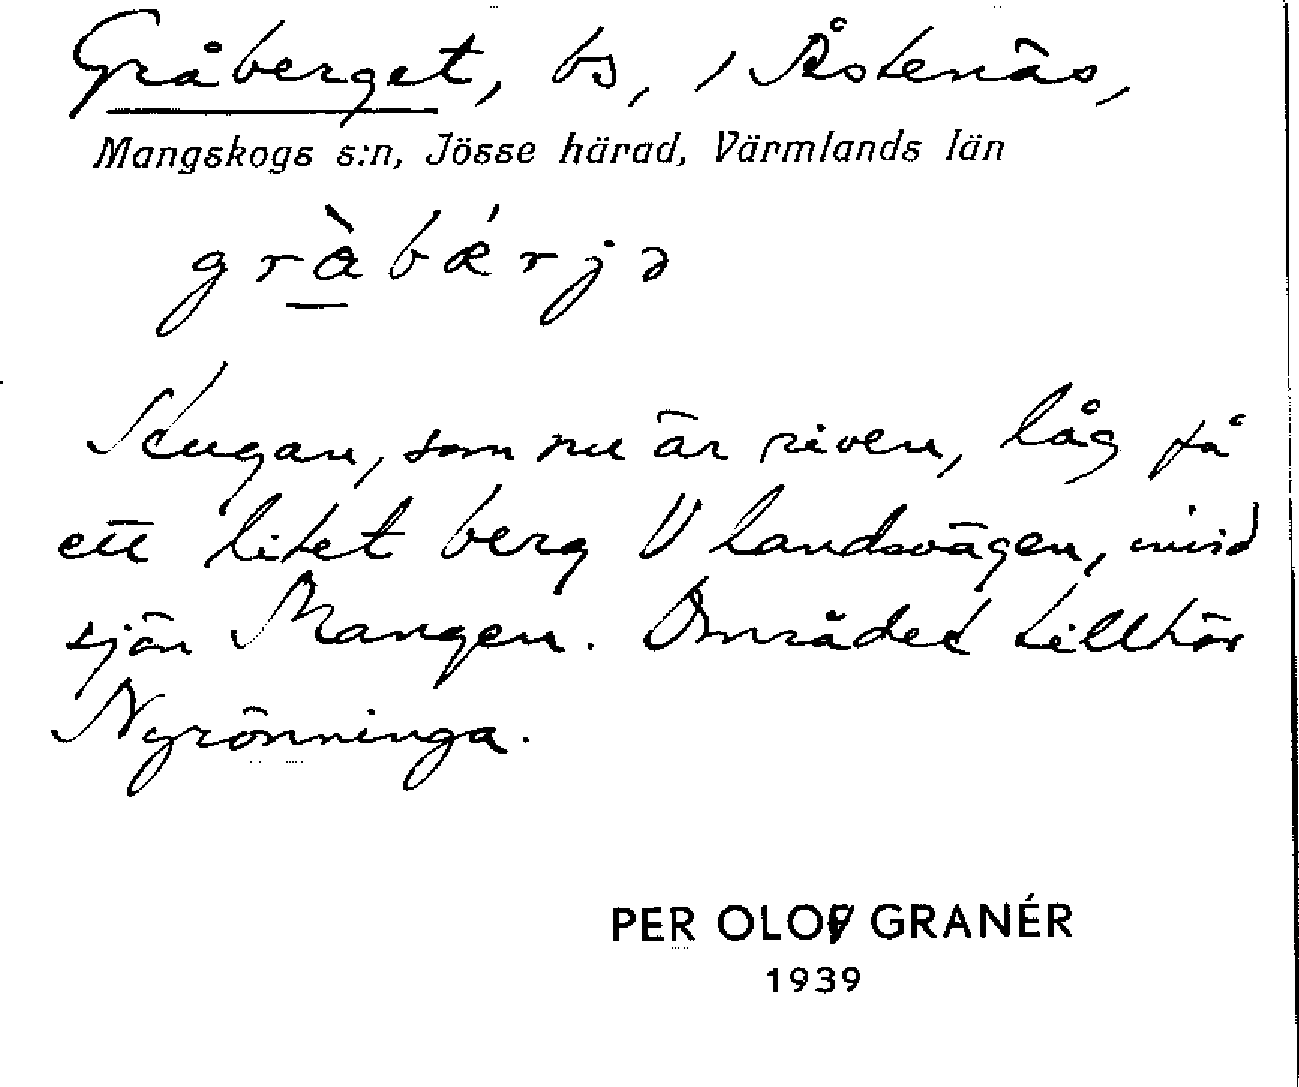 Gråberget, bs, / Åstenäs,
Mangskogs s:n, Jösse härad, Värmlands län
gràbǽrjə
Stugan, som nu är riven, låg på
ett litet berg V landsvägen, invid
sjön Mangen. Området tillhör
Nyrönninga.
PER OLOF GRANÉR
1939